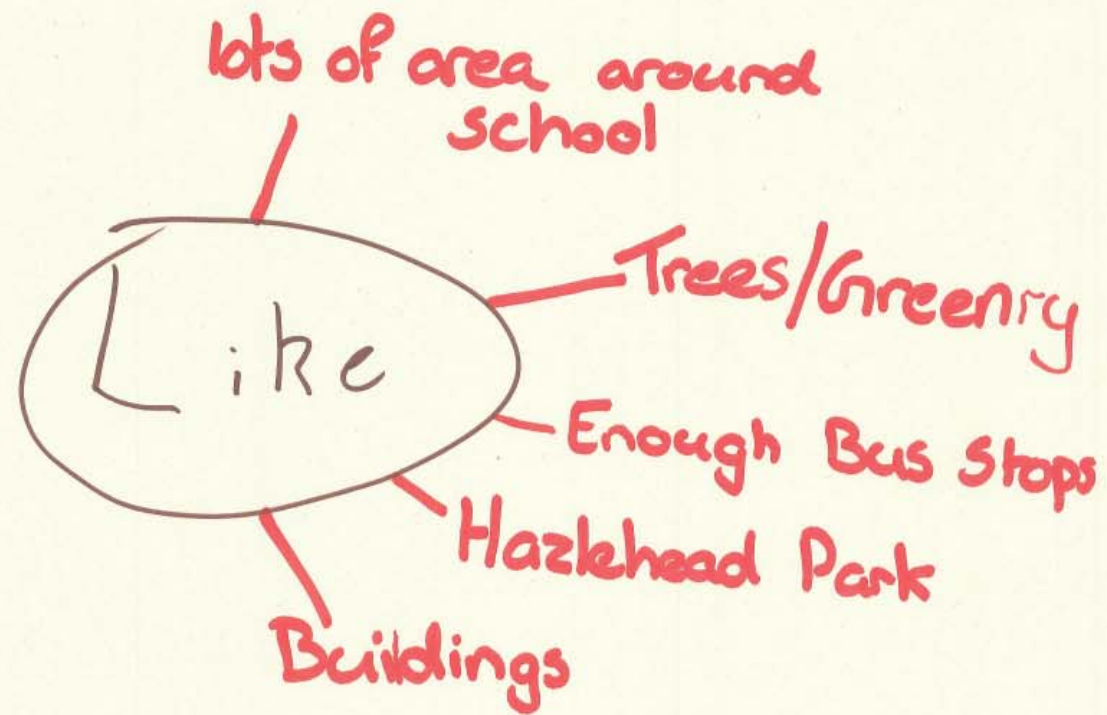 lots of area around
school
Like
Trees/Greenry
Enough Bus Stops
Hazlehead Park
Buildings